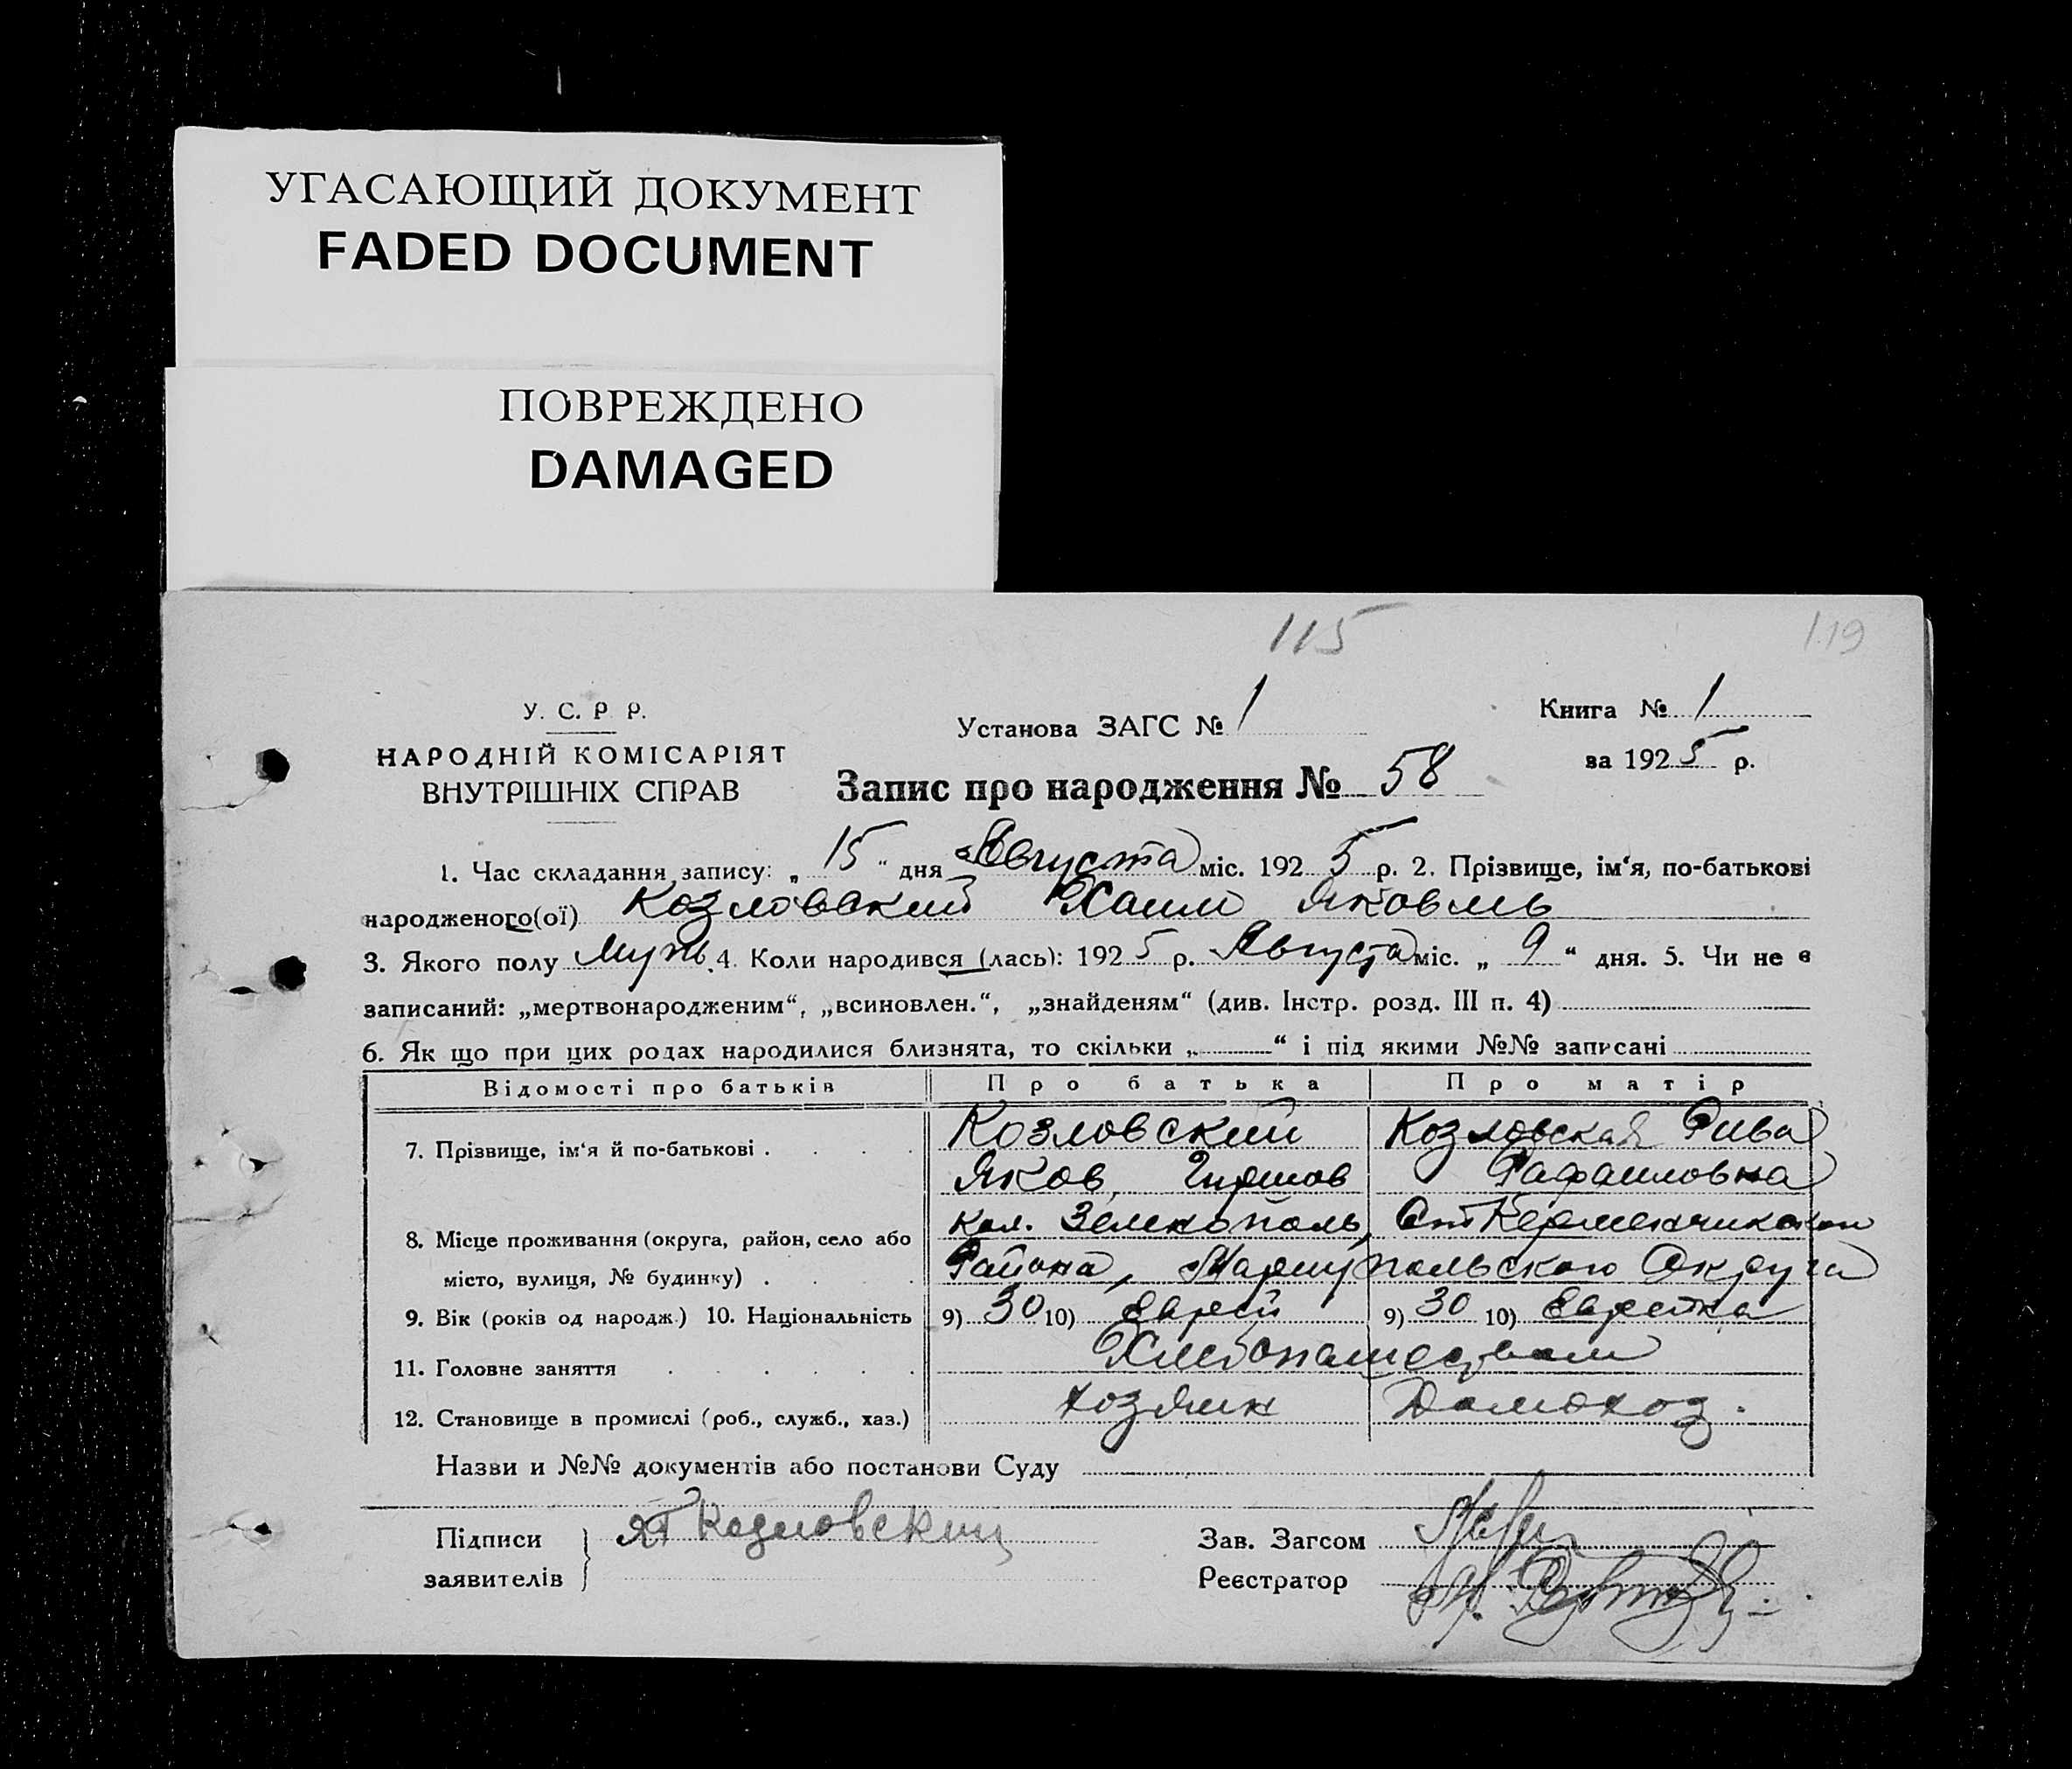 УГАСАЮЩИЙ ДОКУМЕНТ
FADED DOCUMENT
ПОВРЕЖДЕНО
DAMAGED
115
119
У. С. Р. Р.
НАРОДНІЙ КОМІСАРІЯТ
ВНУТРІШНІХ СПРАВ
Установа ЗАГС № 1
Книга № 1
за 1925 р.
Запис про народження № 58
1. Час складання запису: „ 15 “ дня Августа міс. 1925 р. 2. Прізвище, ім‘я, по-батькові
народженого(ої) Козловский Хаим Яковль
3. Якого полу Муж. 4. Коли народився (лась): 1925 р. Августа міс. „ 9 “ дня. 5. Чи не є
записаний: „мертвонародженим“, „всиновлен.“, „знайденям“ (див. Інстр. розд. III п. 4)
6. Як що при цих родах народилися близнята, то скільки „ “ і під якими №№ записані
Відомості про батьків Про батька Про матір
7. Прізвище, ім‘я й по-батькові . . . . Козловский Козловская Рива
Яков Гиршов Рафаиловна
8. Місце проживання (округа, район, село або кол. Зеленополь, Ст Керменчикском
місто, вулиця, № будинку) . . . Района, Мариупольского Округа
9. Вік (років од народж.) 10. Національність 9) 30 10) Еврей 9) 30 10) Еврейка
11. Головне заняття . . . . . . Хлебопашеством
12. Становище в промислі (роб., служб., хаз.) хозяин Домохоз.
Назви и №№ документів або постанови Суду
Підписи
заявителів
ЯГ Козловский
Зав. Загсом
Реєстратор